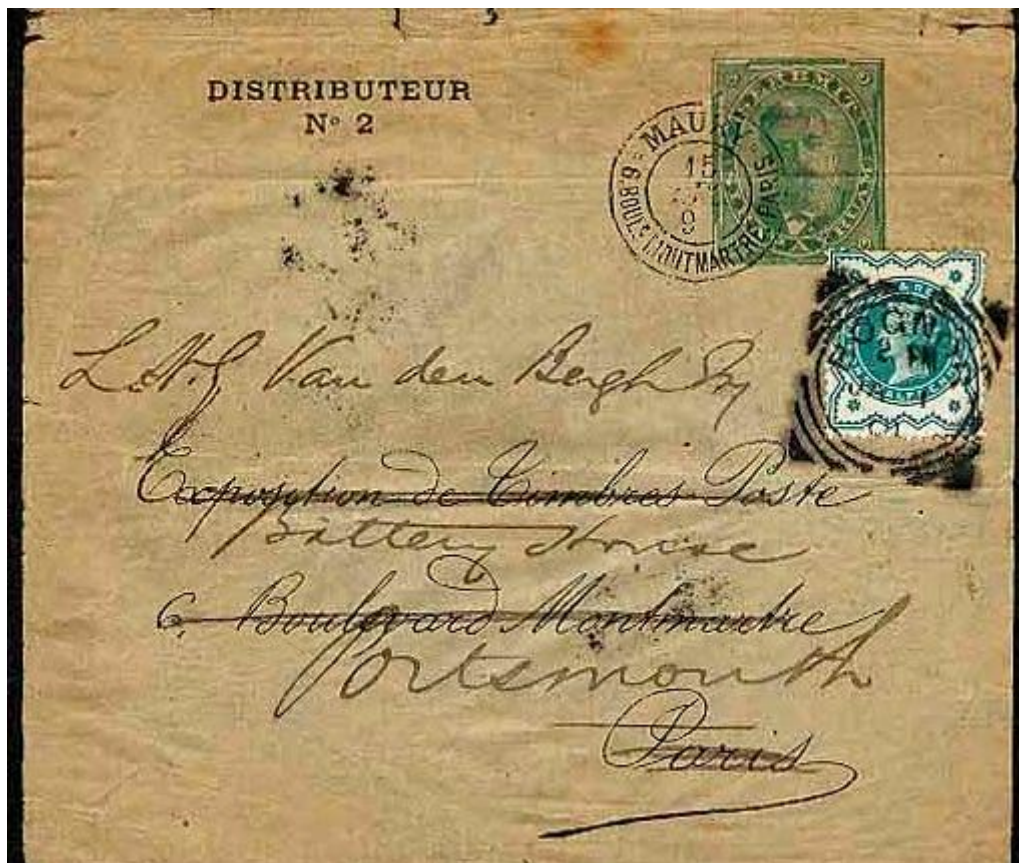 DISTRIBUTEUR
Nº 2
MAU
15
9
6. BOUL. MONTMARTRE PARIS
L.H.G Van den Bergh Esq
Exposition de Timbres Poste
Battery House
6. Boulevard Montmartre
Portsmouth
Paris